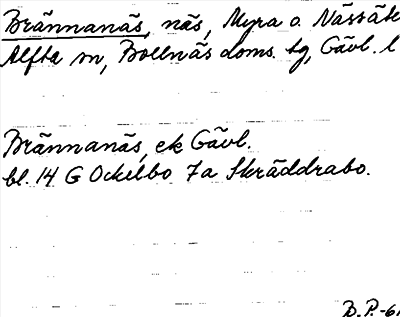 Brännanäs, näs, Myra o. Nässät
Alfta sn, Bollnäs doms. tg, Gävl. l
Brännanäs, ek Gävl.
bl. 14 G Ockelbo 7a Skräddrabo.
B.P.-61